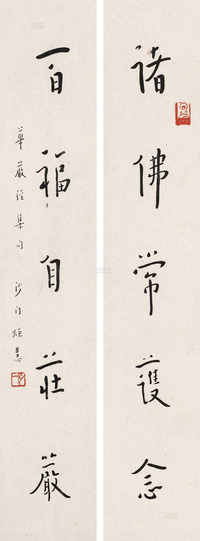 諸佛常護念
百福自莊嚴
華嚴經集句 沙門